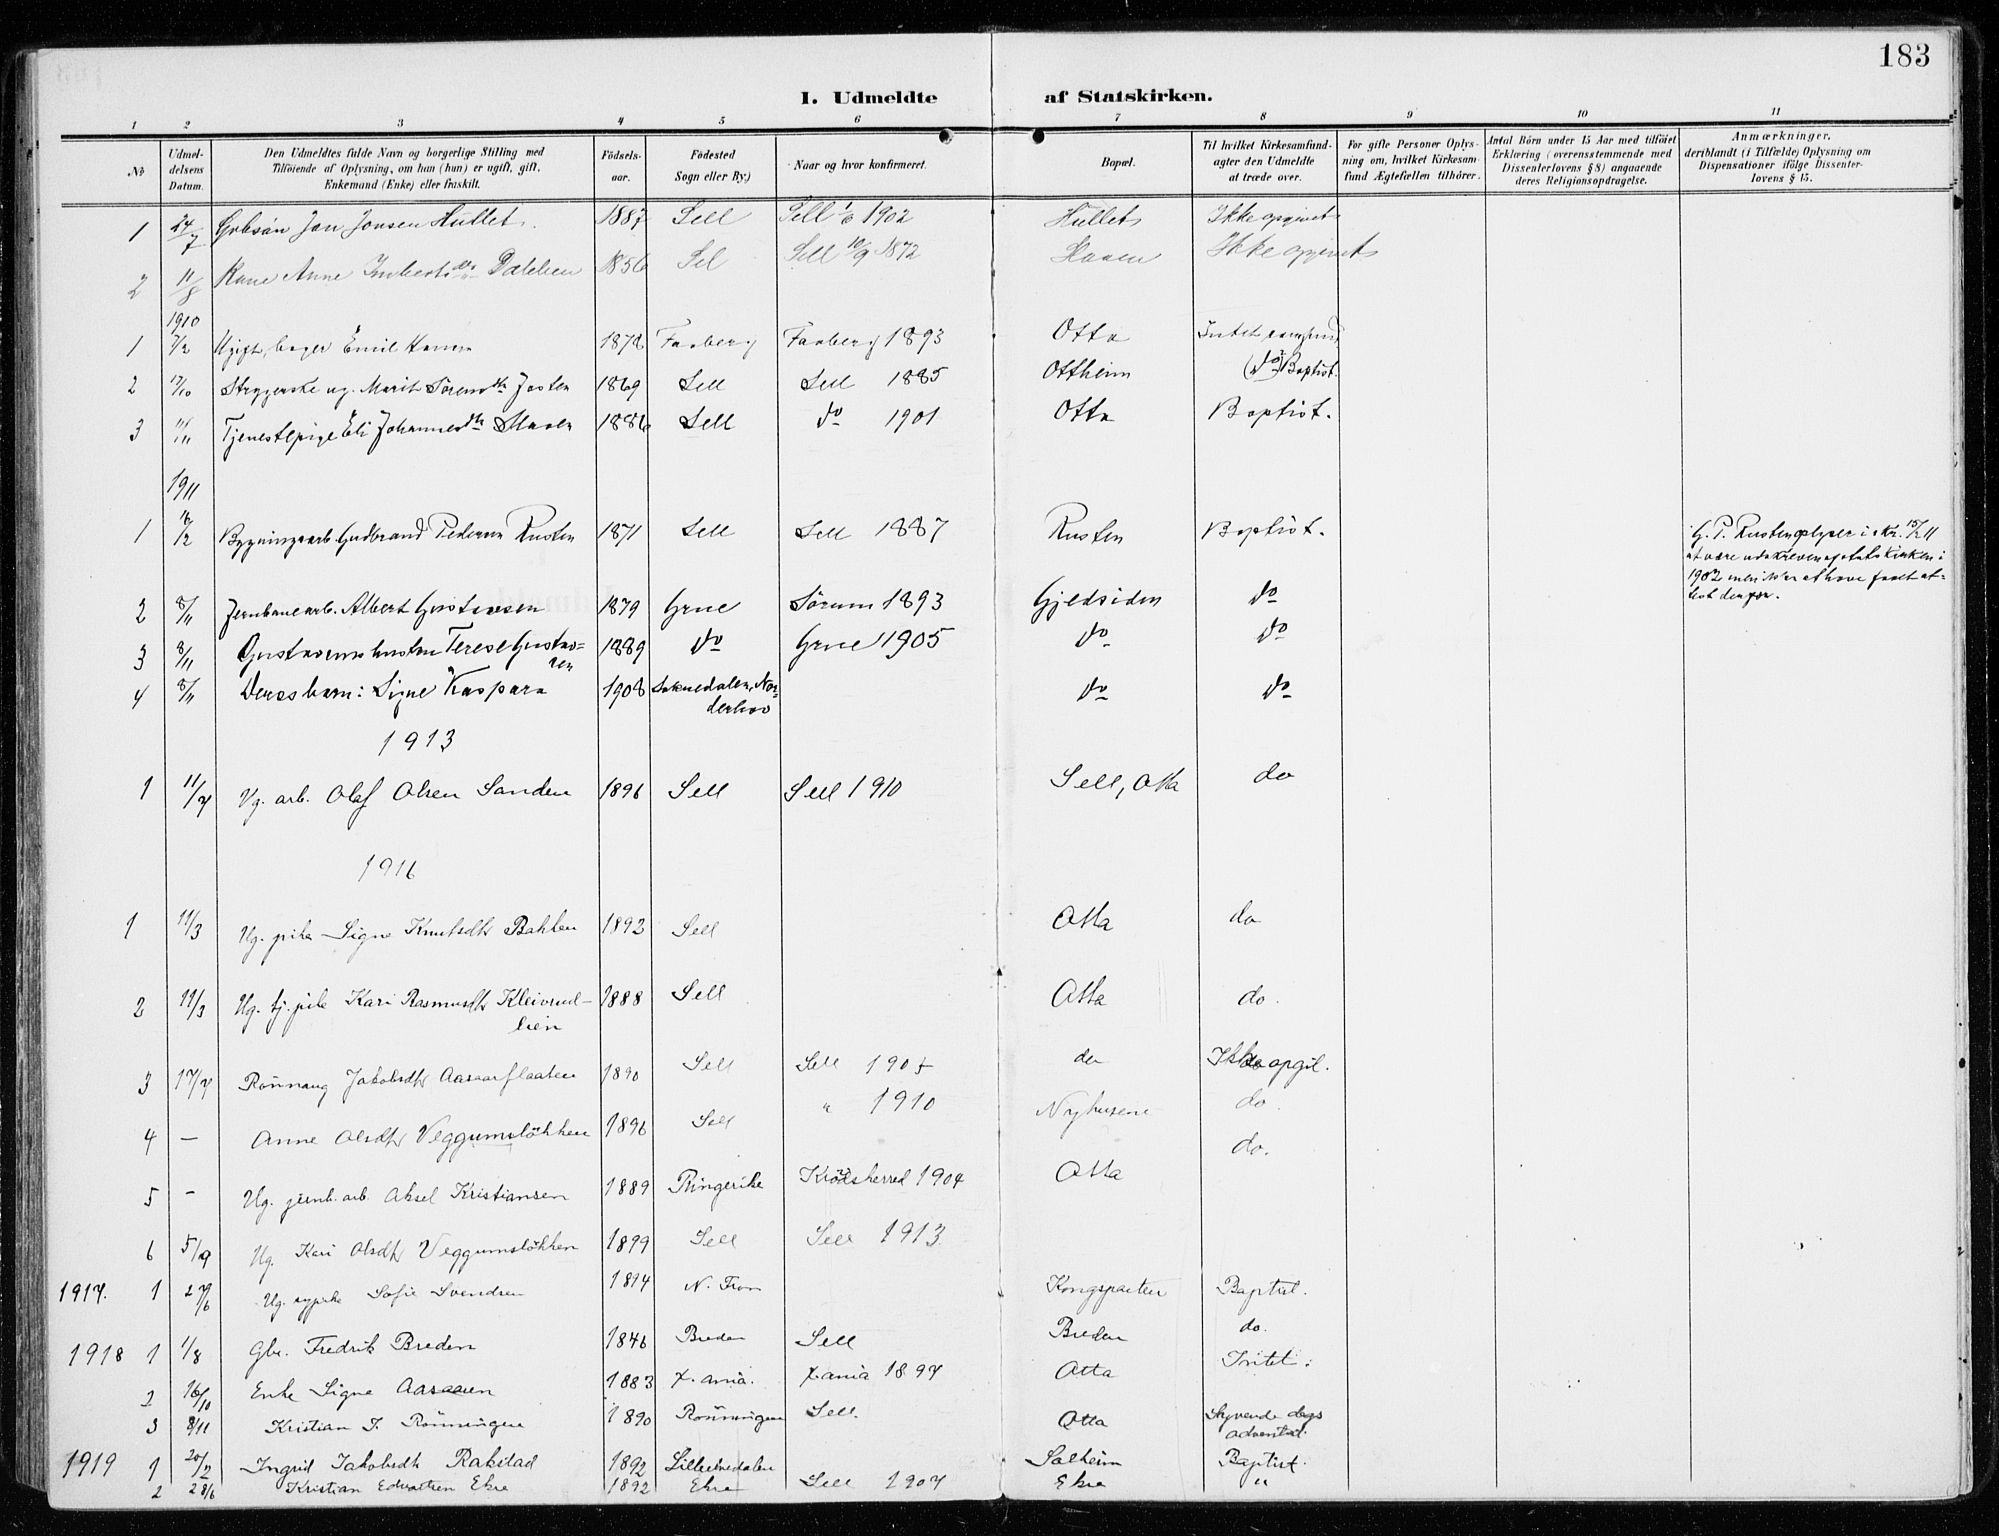 183
I. Udmeldte af Statskirken.
1 2 3 4 5 6 7 8 9 10 11
No Udmeldelsens Datum. Den Udmeldtes fulde Navn og borgerlige Stilling med Tilføiende af Oplysning, om han (hun) er ugift, gift, Enkemand (Enke) eller fraskilt. Fødselsaar. Fødested Sogn eller By.) Naar og hvor konfirmeret. Bopæl. Til hvilket Kirkesamfund agter den Udmeldte at træde over. For gifte Personer Oplysning om, hvilket Kirkesamfund Ægtefællen tilhører. Antal Börn under 15 Aar med tilføiet Erklæring (overensstemmende med Dissenterlovens § 8) angaaende deres Religionsopdragelse. Anmærkninger, deriblandt (i Tilfælde) Oplysning om Dispensationer ifölge Dissenterlovens § 15.
1 24/7 Jon Jonsen Hullet. 1887 Sell Sell 1/6 1902 Hullet Ikke opgivet
2 11/8 Kone Anne Dalelien 1856 Sel Sell 10/9 1872 Haven Ikke opgivet
1910
1 7/2 Ugift, bager Emil Hansen 1878 Faaberg Faaberg 1893 Otta Intet samfund
2 17/10 Strygerske ug. Marit Sørensdtr 1869 Sell Sell 1885 Ottheim (do?) Baptist.
3 11/11 Tjenestepige Eli Johannesdtr Haven 1886 Sell do 1901 Otta Baptist.
1911
1 16/2 Bygningsarb. Gudbrand Pedersen Rusten 1871 Sell Sell 1887 Rusten Baptist. G. P. Rusten oplyser i skr. 15/2 11
at være udskreven af statskirken i
1902 men ikke at have faaet at-
test derfor.
2 8/11 Jernbanearb. Albert Gustavsen 1879 Grue Sørum 1893 Gjeldsiden do
3 8/11 Gustavsens hustru Terese Gustav-
sen 1889 do Grue 1905 do do
4 8/11 Deres barn: Signe Kaspara 1908 Soknedalen, Nor-
derhov do do
1913
1 11/7 Ug. arb. Olaf Olsen Sanden 1896 Sell Sell 1910 Sell, Otta do
1916
1 11/3 Ug. pike Signe Knutsdtr Bakken 1892 Sell Otta do
2 11/3 Ug. tj. pike Kari Rasmusdtr Kleivrud-
lien 1888 Sell Otta do.
3 17/7 Rönnaug Jakobsdtr Aasaarflaaten 1890 Sell Sell 1905 do Ikke opgit.
4 — Anne Olsdtr Veggumsløkken 1896 Sell " 1910 Nyhusene do.
5 - Ug. jernb. arb. Aksel Kristiansen 1889 Ringerike Krödsherred 1904 Otta do.
6 5/9 Ug. Kari Olsdtr Veggumslökken 1899 Sell Sell 1913
1917. 1 27/6 Ug. sypike Sofie Svendsen 1894 N. Fron Kongsparten Baptist.
1918 1 1/8 Gbr. Fredrik Breden 1846 Breden Sell Breden do.
2 16/10 Enke Signe Aasaaren 1883 X.ania. Xania 1897 Otta Intet.
3 8/11 Kristian J. Rönningen 1890 Rönningen Sell. Otta Syvende dags
advent.
1919 1 20/2 Ingrid Jakobsdtr Rakstad 1892 Lilleelvedalen Solheim Baptist.
2 28/6 Kristian Edvartsen Ekre 1892 Ekre Sell 1907 Ekre "